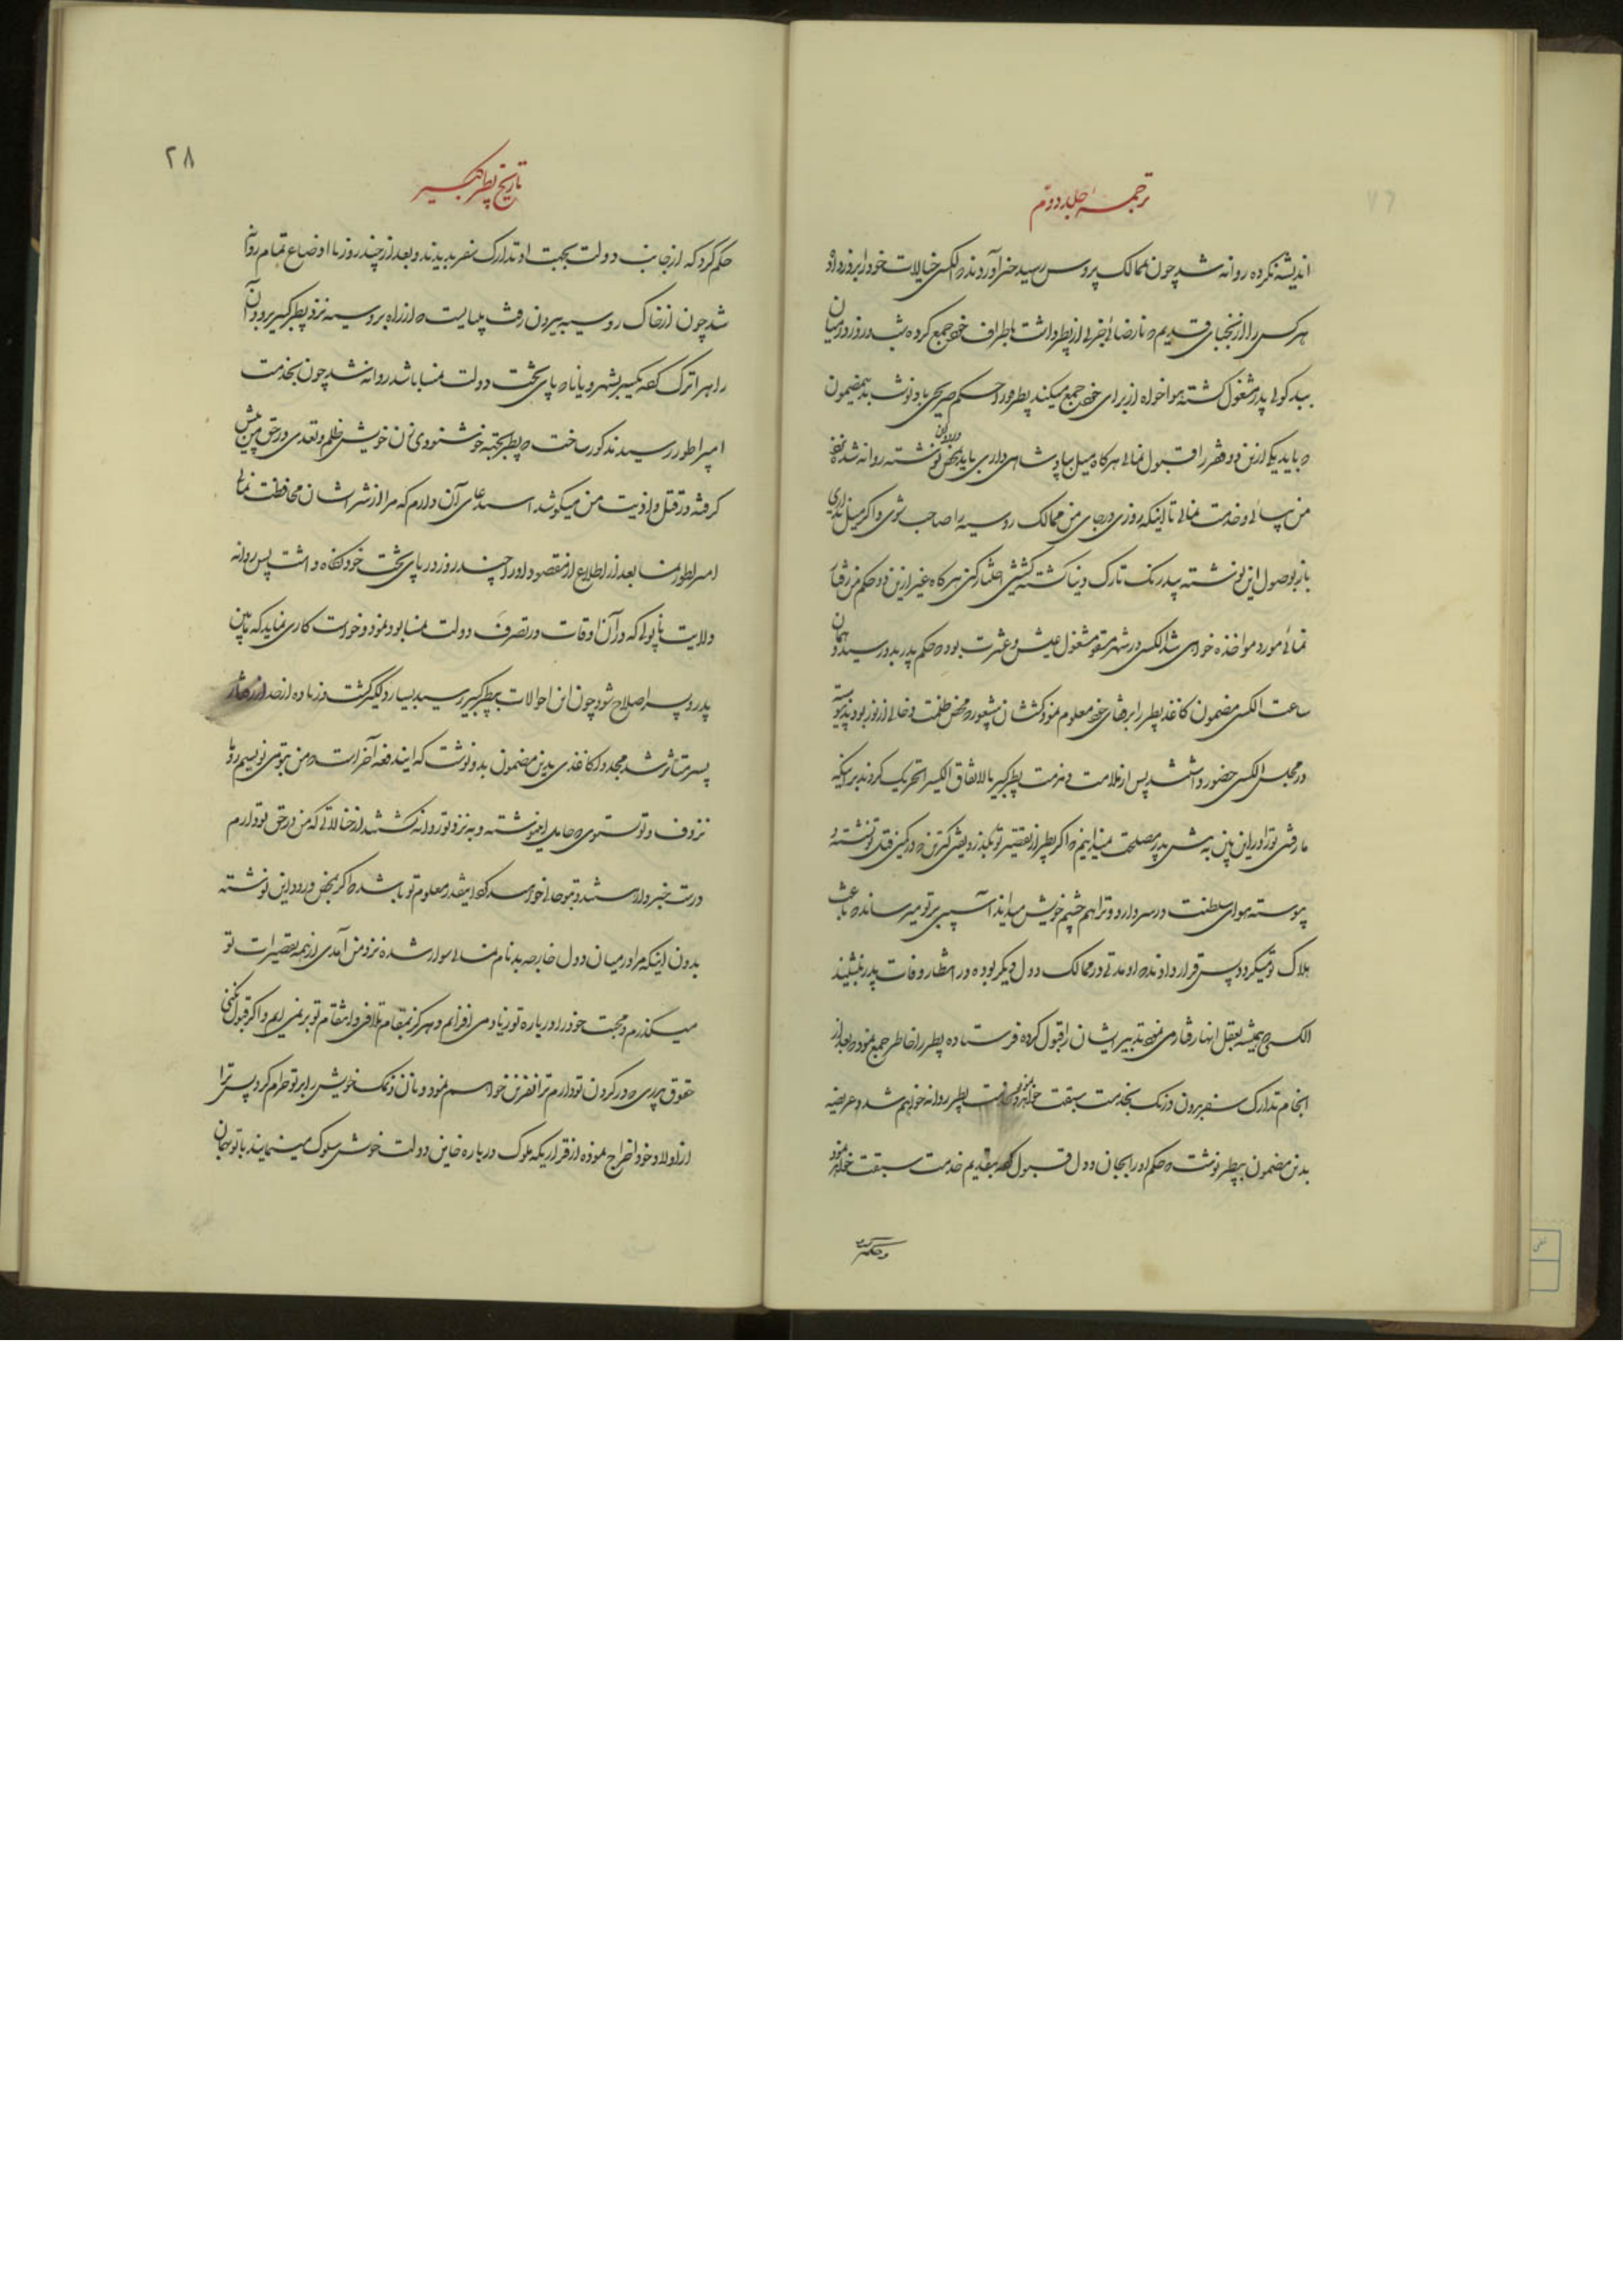 ترجمهٔ جلد دوم
اندیشه نکرده روانه شد چون بممالک پروس رسید خبر آوردند که الکسی خیالات خود را بروز داده
هر کس را از نجبای قدیم که نارضائی از پطر داشت باطراف خود جمع کرده شب و روز در میان
پدر مشغول گشته هواخواه از برای خود جمع میکند پطر در حکم صریحی باو نوشت بدینمضمون
که باید یکی از این دو فقره را قبول نمائی هر گاه میل بپادشاهی داری باید بمحض ورود این نوشته روانه شده نزد
من بیائی و خدمت نمائی تا اینکه روزی در جای من ممالک روسیه را صاحب شوی و اگر میل نداری
باز بوصول این نوشته بیدرنگ تارک دنیا گشته کشیشی اختیار کن هر گاه غیر از این دو حکم من رفتار
نمائی مورد مؤاخذه خواهی شد الکسی در شهر مسقو مشغول عیش و عشرت بود که حکم پدر بدو رسید در همان
ساعت الکسی مضمون کاغذ پطر را برفقای خود معلوم نمود کشیشان بیشعور که محض ظلمت و خالی از نور بودند پیوسته
در مجلس الکسی حضور داشتند پس از ملامت و مذمت پطر کبیر بالاتفاق الکسی را تحریک کردند بر اینکه
ما رفتن تو را در این پیش پدر مصلحت نمیدانیم که اگر پطر از تقصیر تو بگذرد کترین که در کمین قتل تو نشسته و
پیوسته هوای سلطنت در سر دارد و ترا هم چشم خویش میداند آسیبی بر تو میرساند که باعث
هلاک تو میگردد پس قرار دادند که او مدتی در ممالک دول دیگر بوده در انتظار وفات پدر بنشیند
الکسی که همیشه بعقل آنها رفتار می نمود تدبیر ایشان را قبول کرده فرستاده پطر را خاطر جمع نمود که بعد از
انجام تدارک سفر بدون درنگ بخدمت پطر روانه خواهم شد و عریضه
بدین مضمون بپطر نوشت که حکم او را بجان و دل قبول کرده بتقدیم خدمت سبقت خواهد نمود
و حکم کرد
تاریخ پطر کبیر
۲۸
حکم کرد که از جانب دولت بجهت او تدارک سفر بدیدند و بعد از چند روز با اوضاع تمام روانه
شد چون از خاک روسیه بیرون رفت میبایست که از راه پروسیه نزد پطر کبیر برود آن
راه را ترک کرده یکسر بشهر ویانا که پای تخت دولت نمسا باشد روانه شد چون بخدمت
امپراطور رسید مذکور ساخت که پطر بجهة خوشنودی زن خویش ظلم و تعدی در حق من پیش
گرفته در قتل و اذیت من میکوشد استدعای آن دارم که مرا از شر ایشان محافظت نمائی
امپراطور نمسا بعد از اطلاع از مقصود او را چند روز در پای تخت خود نگاه داشت پس روانه
ولایت ناپولی که در آن اوقات در تصرف دولت نمسا بود نمود و خواست کاری نماید که مابین
پدر و پسر اصلاح شود چون این احوالات بپطر کبیر رسید بسیار دلگیر گشت و زیاده از حد از رفتار
پسر متأثر شد مجددا کاغذی بدین مضمون بدو نوشت که ایندفعه آخر است که من بتو می نویسم
و تولستوی که حامل این نوشته و به نزد تو روانه گشتند از خیالاتی که من در حق تو دارم
درست خبردار هستند و بتو حالی خواهند کرد اینقدر معلوم تو باشد که اگر بمحض ورود این نوشته
بدون اینکه مرا در میان دول خارجه بدنام نمائی سوار شده نزد من آمدی از همه تقصیرات تو
میگذرم و محبت خود را در باره تو زیاد می افزایم و هرگز بمقام تلافی و انتقام تو بر نمی آیم و اگر قبول نکنی
حقوق پدری که در گردن تو دارم ترا نفرین خواهم نمود و نان و نمک خویش را بر تو حرام کرده پس ترا
از اولاد خود اخراج نموده از قراریکه ملوک در باره خاین دولت خویش سلوک مینمایند با تو بهمان